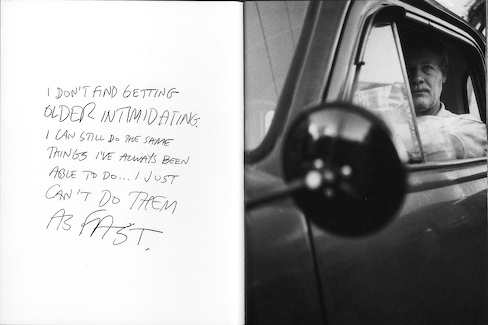 I DON'T FIND GETTING
OLDER INTIMIDATING.
I CAN STILL DO THE SAME
THINGS I'VE ALWAYS BEEN
ABLE TO DO... I JUST
CAN'T DO THEM
AS FAST.